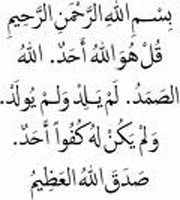 بِسْمِ اللهِ الرَّحْمٰنِ الرَّحِيمِ
قُلْ هُوَ اللهُ أَحَدٌ. اللهُ
الصَمَدُ. لَمْ يَلِدْ وَلَمْ يُولَدْ.
وَلَمْ يَكُنْ لَهُ كُفُواً أَحَدٌ.
صَدَقَ اللهُ العَظِيمُ